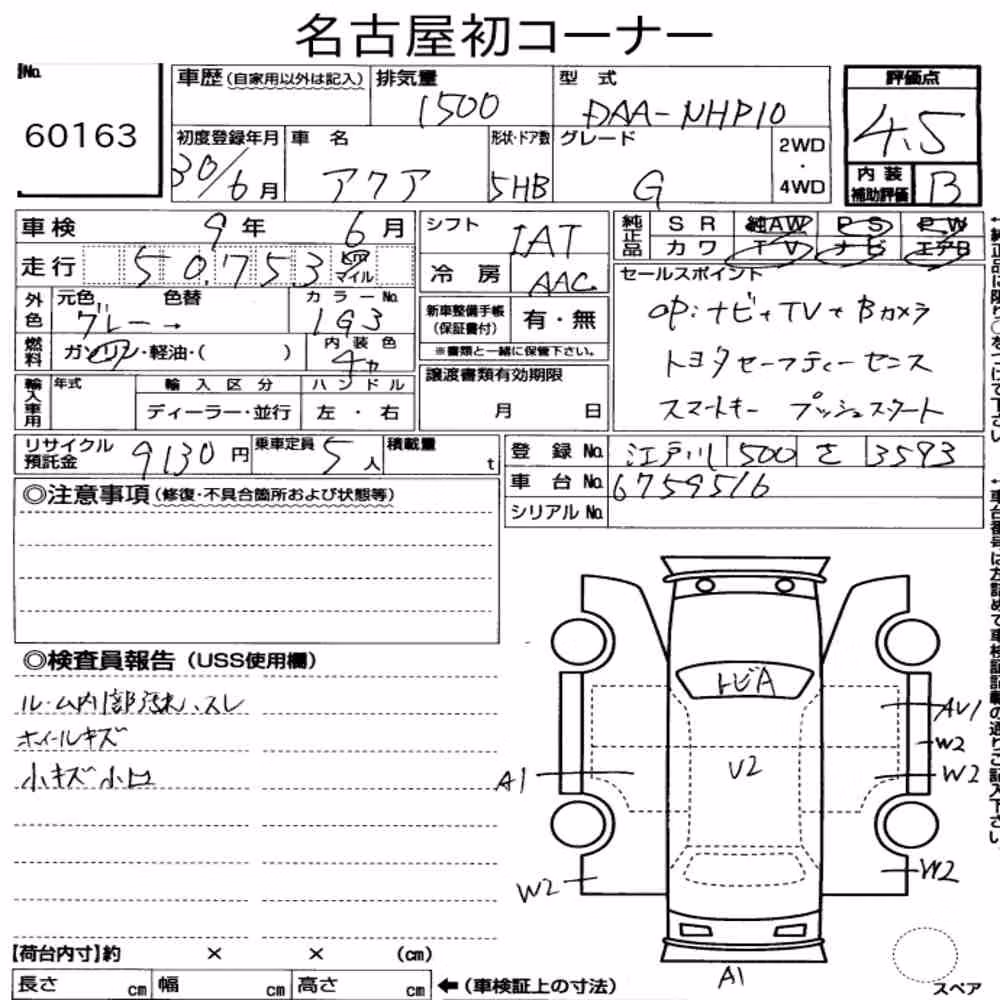 名古屋初コーナー
No. 60163
車歴 (自家用以外は記入) 排気量 1500 型式 DAA-NHP10 評価点 4.5
初度登録年月 30/6月 車名 アクア 形状・ドア数 5HB グレード G 2WD・4WD 内装補助評価 B
車検 9年 6月 シフト IAT 純正品 SR 純AW PS PW
走行 50,753 km マイル 冷房 AAC カワ TV ナビ エアB
外色 元色 グレー→ 色替 カラーNo. 1G3
燃料 ガソリン・軽油・( ) 内装色 チャ
新車整備手帳(保証書付) 有・無
※書類と一緒に保管下さい。
セールスポイント
OP:ナビ+TV+Bカメラ
トヨタセーフティーセンス
スマートキー プッシュスタート
輸入車用 年式 輸入区分 ハンドル
ディーラー・並行 左・右
譲渡書類有効期限
月 日
リサイクル預託金 9130円 乗車定員 5人 積載量 t
登録No. 江戸川 500 さ 3593
車台No. 6759516
シリアルNo.
◎注意事項(修復・不具合箇所および状態等)
◎検査員報告(USS使用欄)
ルーム内部汚れ、スレ
ホイールキズ
小キズ小凹
トビA
AV1
W2
A1
V2
W2
W2
W2
A1
スペア
【荷台内寸】約 × × (cm)
長さ cm 幅 cm 高さ cm ←(車検証上の寸法)
←純正品に限り○をつけて下さい
←車台番号は左詰めで車検証記載の通りご記入下さい。